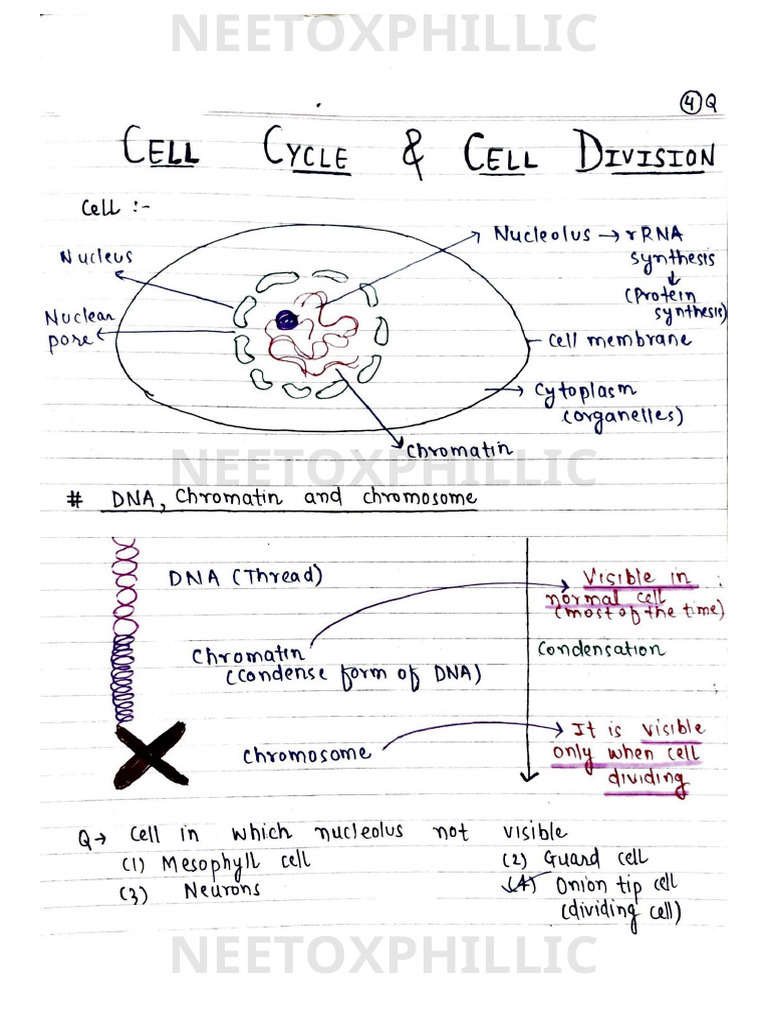 NEETOXPHILLIC
4 Q
CELL CYCLE & CELL DIVISION
Cell :-
Nucleus
Nuclear
pore
Nucleolus → rRNA
synthesis
↓
(Protein
synthesis)
Cell membrane
Cytoplasm
(organelles)
Chromatin
NEETOXPHILLIC
# DNA, Chromatin and chromosome
DNA (Thread)
Visible in
normal cell
(most of the time)
Chromatin
(condense form of DNA)
Condensation
Chromosome
It is visible
only when cell
dividing
Q→ Cell in which nucleolus not visible
(1) Mesophyll cell
(2) Guard cell
(3) Neurons
(4) Onion tip cell
(dividing cell)
NEETOXPHILLIC